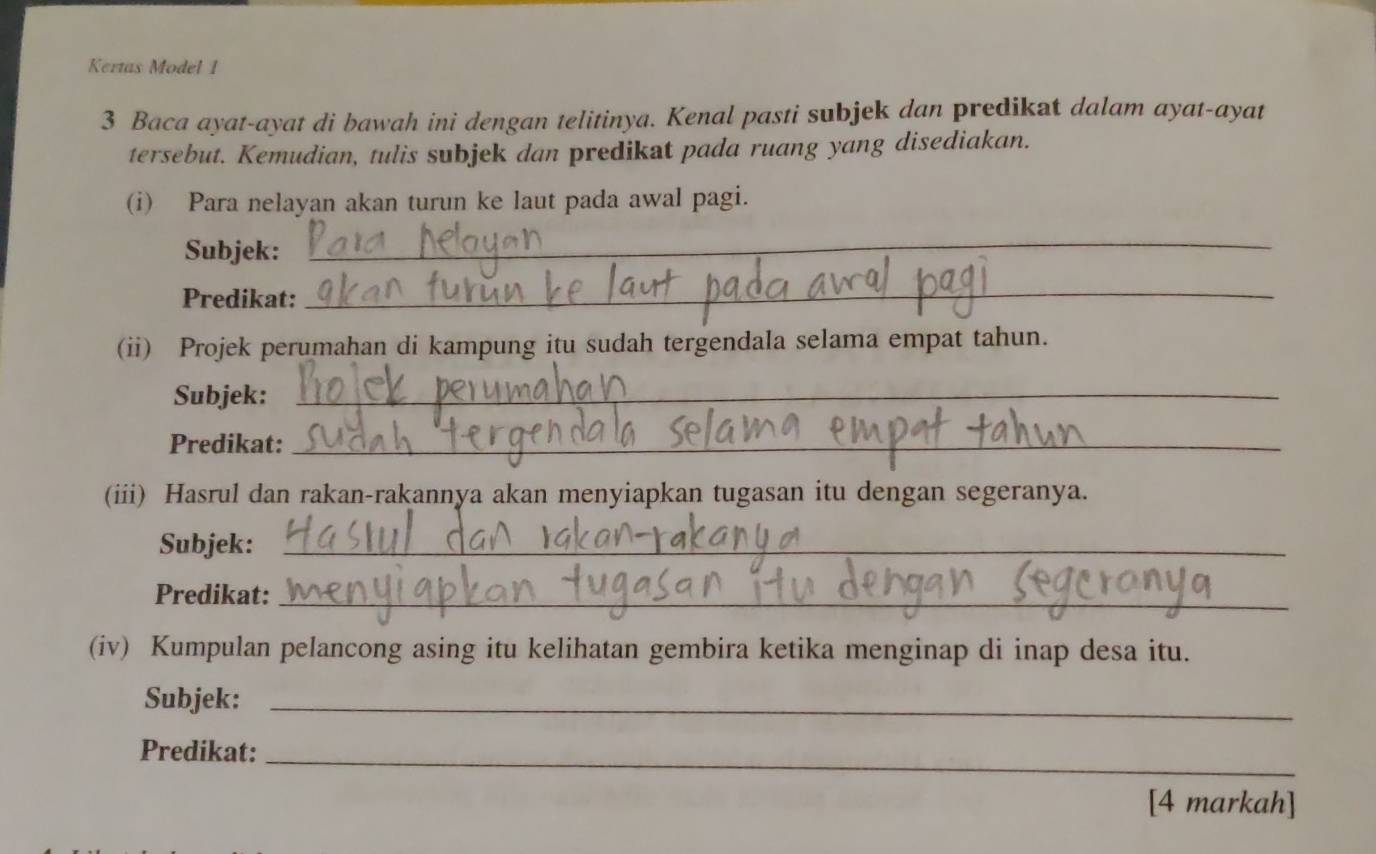 Kertas Model 1
3 Baca ayat-ayat di bawah ini dengan telitinya. Kenal pasti subjek dan predikat dalam ayat-ayat
tersebut. Kemudian, tulis subjek dan predikat pada ruang yang disediakan.
(i) Para nelayan akan turun ke laut pada awal pagi.
Subjek: Para nelayan
Predikat: akan turun ke laut pada awal pagi
(ii) Projek perumahan di kampung itu sudah tergendala selama empat tahun.
Subjek: Projek perumahan
Predikat: sudah tergendala selama empat tahun
(iii) Hasrul dan rakan-rakannya akan menyiapkan tugasan itu dengan segeranya.
Subjek: Hasrul dan rakan-rakanya
Predikat: menyiapkan tugasan itu dengan segeranya
(iv) Kumpulan pelancong asing itu kelihatan gembira ketika menginap di inap desa itu.
Subjek:
Predikat:
[4 markah]